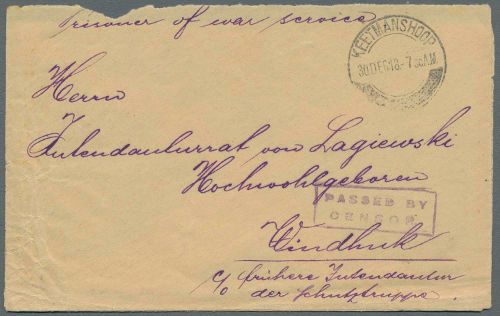 Prisoner of war service
KEETMANSHOOP
30 DEC 18 - 7 30 AM
Herrn
Intendanturrat von Lagiewski
Hochwohlgeboren
PASSED BY
CENSOR
Windhuk
c/o frühere Intendantur
der Schutztruppe.